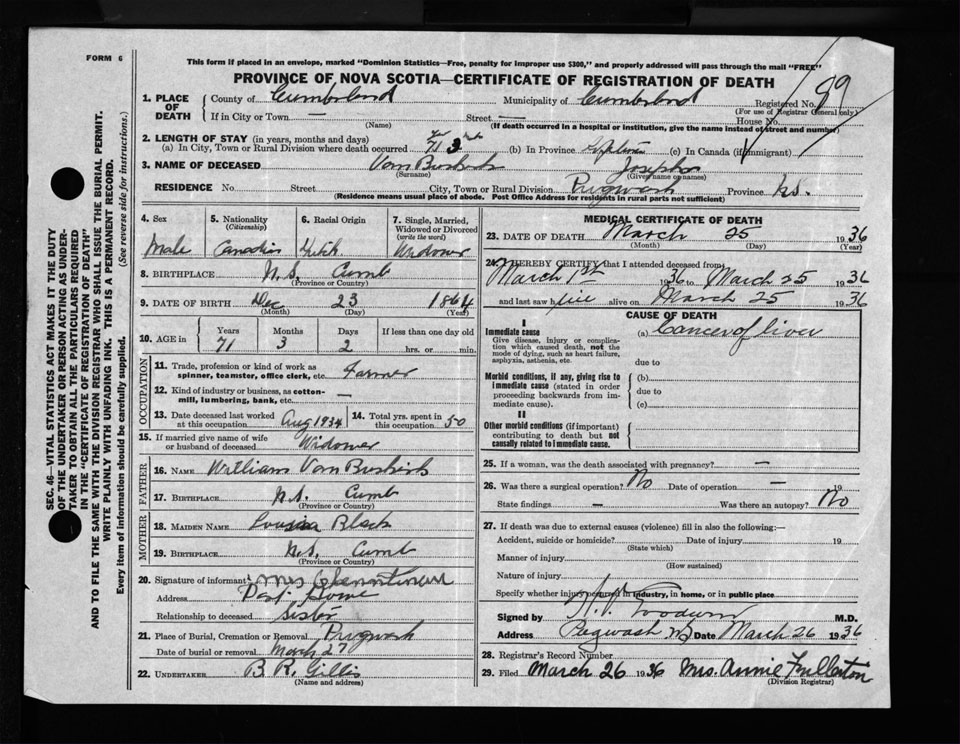 FORM 6
This form if placed in an envelope, marked "Dominion Statistics—Free, penalty for improper use $300," and properly addressed will pass through the mail "FREE"
PROVINCE OF NOVA SCOTIA—CERTIFICATE OF REGISTRATION OF DEATH
1. PLACE OF DEATH County of Cumberland Municipality of Cumberland Registered No. 89
(For use of Registrar General only)
If in City or Town — Street — House No.
(Name) (If death occurred in a hospital or institution, give the name instead of street and number)
2. LENGTH OF STAY (in years, months and days)
(a) In City, Town or Rural Division where death occurred 71 3 (b) In Province (c) In Canada (if immigrant)
3. NAME OF DECEASED Van Buskirk Joseph
(Surname) (Given name or names)
RESIDENCE No. Street City, Town or Rural Division Pugwash Province N.S.
(Residence means usual place of abode. Post Office Address for residents in rural parts not sufficient)
4. Sex Male
5. Nationality (Citizenship) Canadian
6. Racial Origin
7. Single, Married, Widowed or Divorced (write the word) Widower
8. BIRTHPLACE N.S. Cumb
(Province or Country)
9. DATE OF BIRTH Dec 23 1864
(Month) (Day) (Year)
10. AGE in Years 71 Months 3 Days 2 If less than one day old hrs. or min.
OCCUPATION
11. Trade, profession or kind of work as spinner, teamster, office clerk, etc. Farmer
12. Kind of industry or business, as cotton-mill, lumbering, bank, etc. —
13. Date deceased last worked at this occupation Aug 1934
14. Total yrs. spent in this occupation 50
15. If married give name of wife or husband of deceased Widower
FATHER
16. NAME William Van Buskirk
17. BIRTHPLACE N.S. Cumb
(Province or Country)
MOTHER
18. MAIDEN NAME Louisa Black
19. BIRTHPLACE N.S. Cumb
(Province or Country)
20. Signature of informant Mrs
Address Port Howe
Relationship to deceased Sister
21. Place of Burial, Cremation or Removal Pugwash
Date of burial or removal March 27
22. UNDERTAKER B. R. Gillis
(Name and address)
MEDICAL CERTIFICATE OF DEATH
23. DATE OF DEATH March 25 1936
(Month) (Day) (Year)
24. I HEREBY CERTIFY that I attended deceased from
March 1st 1936 to March 25 1936
and last saw h alive on March 25 1936
CAUSE OF DEATH
I
Immediate cause (a) Cancer of liver
Give disease, injury or complication which caused death, not the mode of dying, such as heart failure, asphyxia, asthenia, etc.
due to
Morbid conditions, if any, giving rise to immediate cause (stated in order proceeding backwards from immediate cause).
(b)
due to
(c)
II
Other morbid conditions (if important) contributing to death but not causally related to immediate cause.
25. If a woman, was the death associated with pregnancy? —
26. Was there a surgical operation? No Date of operation — 19
State findings — Was there an autopsy? No
27. If death was due to external causes (violence) fill in also the following:—
Accident, suicide or homicide? Date of injury 19
(State which)
Manner of injury
(How sustained)
Nature of injury
Specify whether injury occurred in industry, in home, or in public place
Signed by Goodwin M.D.
Address Pugwash NS Date March 26 1936
28. Registrar's Record Number
29. Filed March 26 1936 Mrs. Annie Fullerton
(Division Registrar)
SEC. 46—VITAL STATISTICS ACT MAKES IT THE DUTY
OF THE UNDERTAKER OR PERSON ACTING AS UNDER-
TAKER TO OBTAIN ALL THE PARTICULARS REQUIRED
IN THE "CERTIFICATE OF REGISTRATION OF DEATH"
AND TO FILE THE SAME WITH THE DIVISION REGISTRAR WHO SHALL ISSUE THE BURIAL PERMIT.
WRITE PLAINLY WITH UNFADING INK. THIS IS A PERMANENT RECORD.
Every item of information should be carefully supplied. (See reverse side for instructions.)